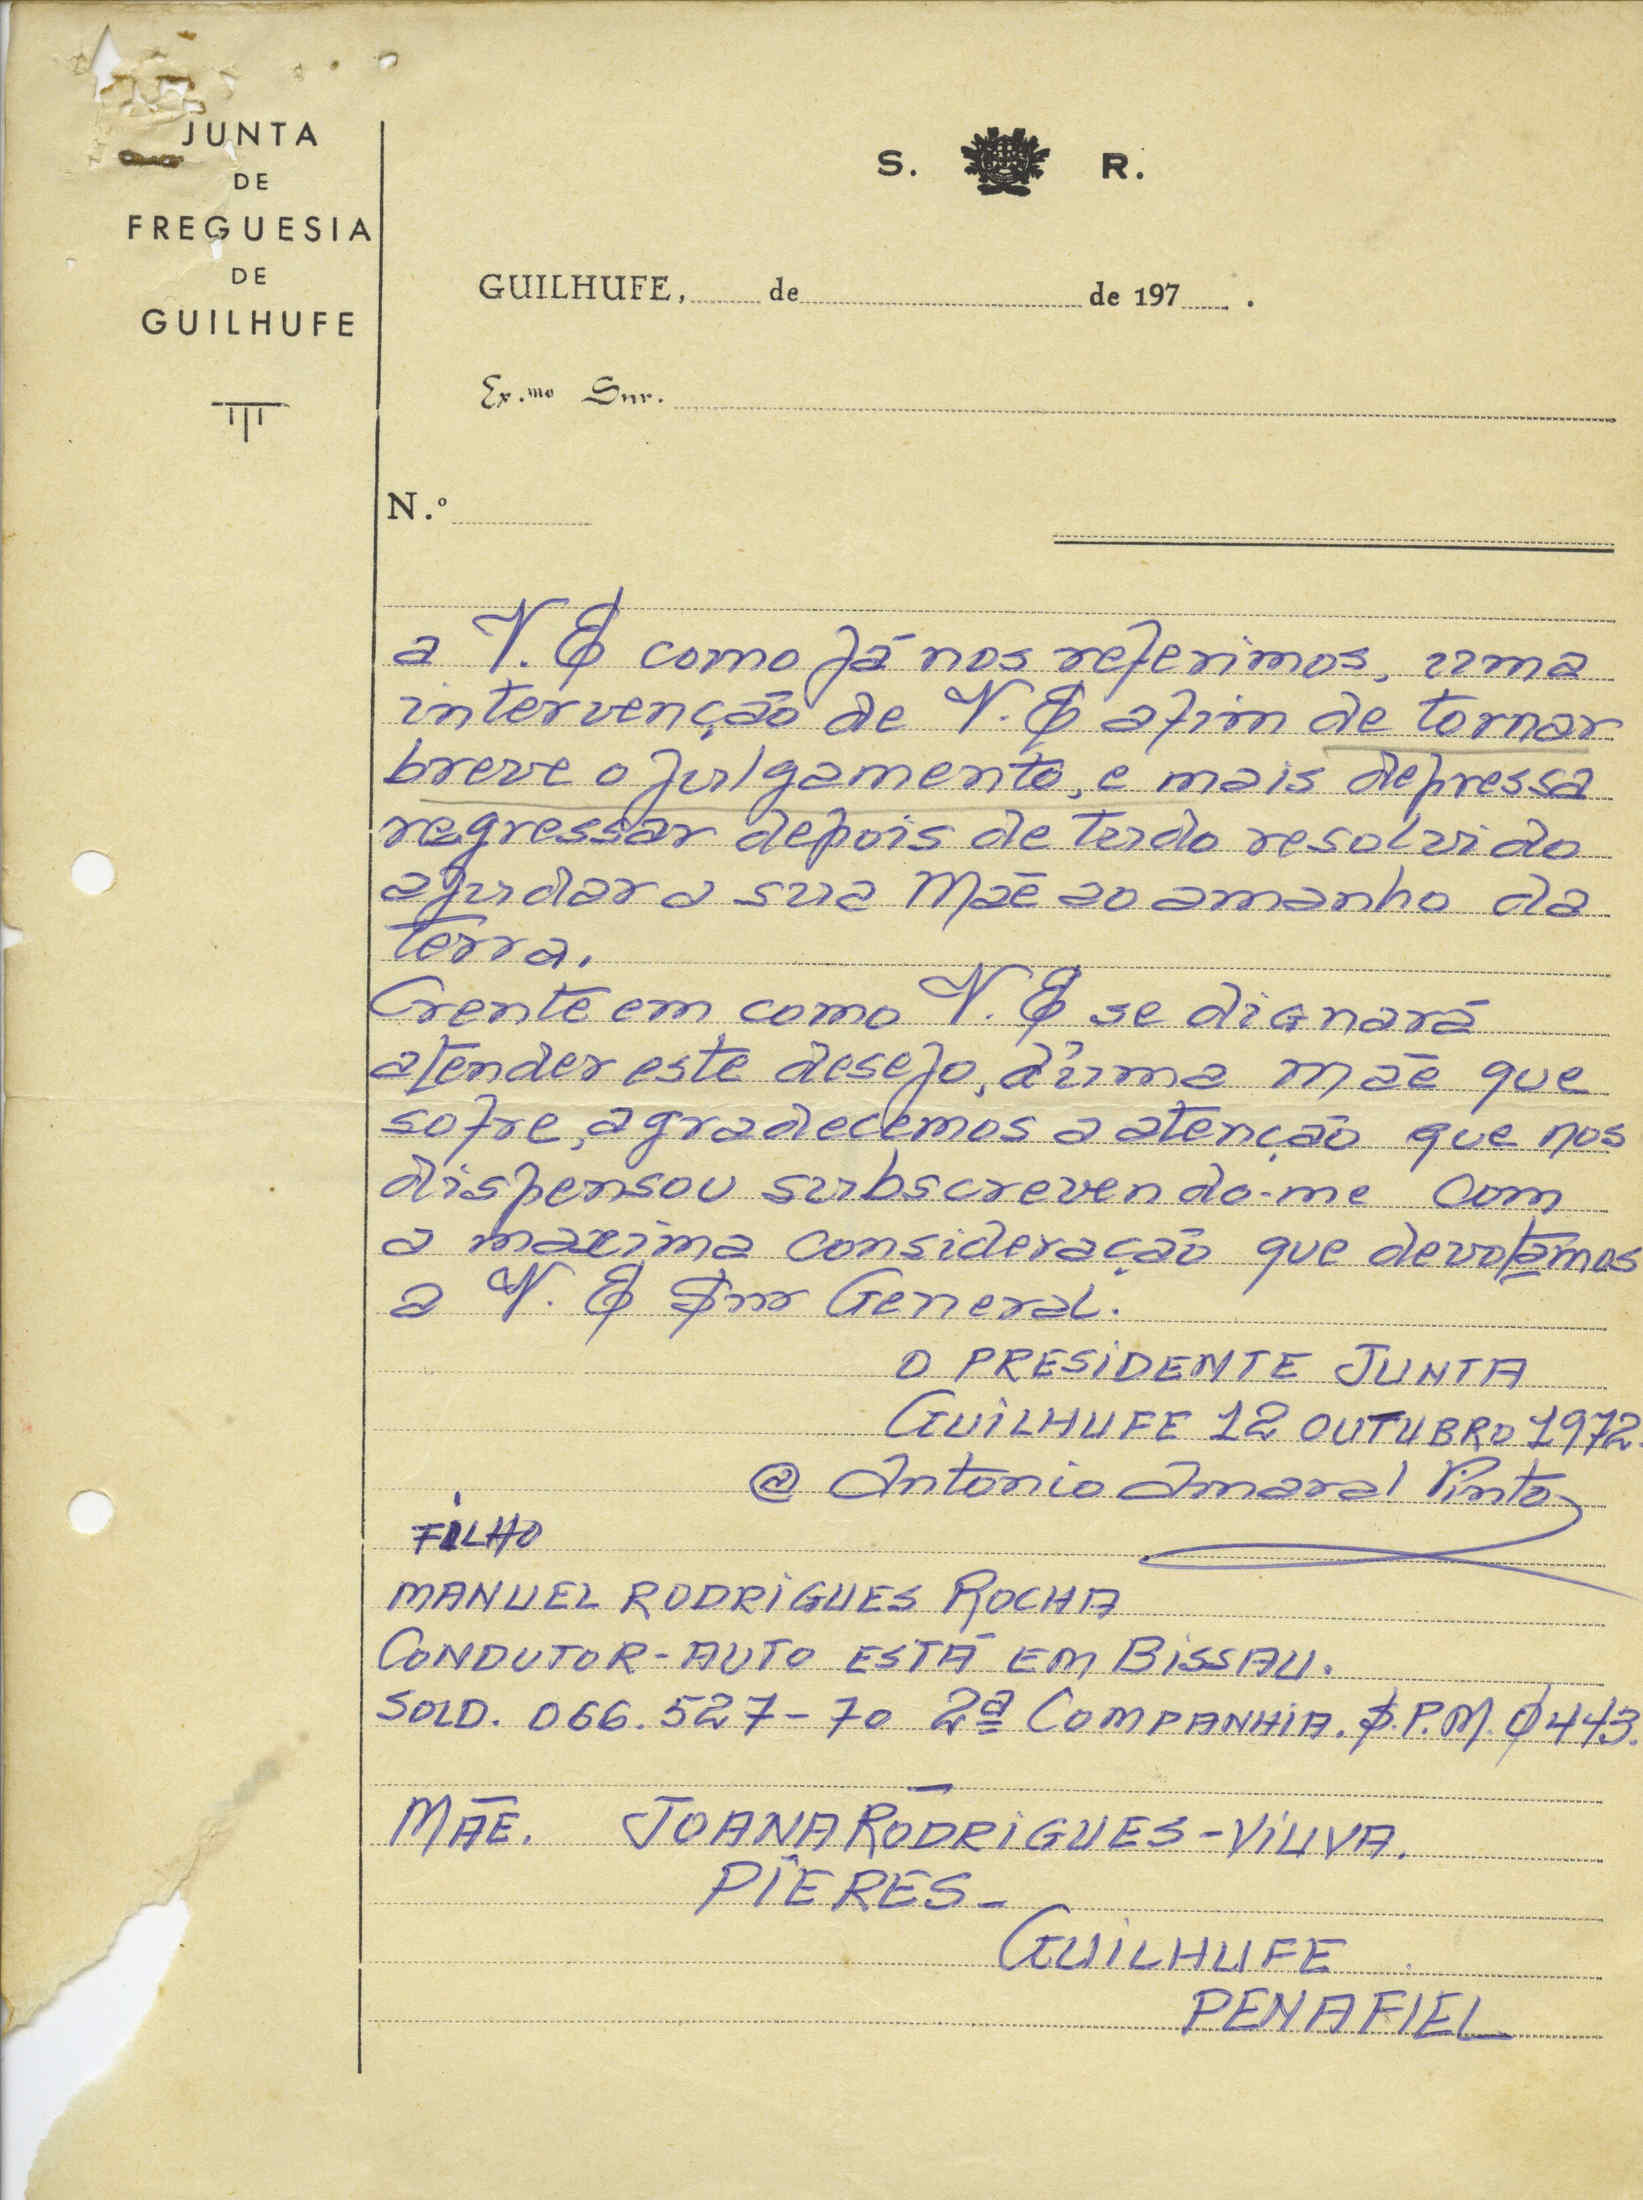 JUNTA
DE
FREGUESIA
DE
GUILHUFE
S. R.
GUILHUFE, de de 197 .
Ex.mo Snr.
N.º
a V. E como já nos referimos, uma
intervenção de V. E afim de tornar
breve o julgamento, e mais depressa
regressar depois de tudo resolvido
ajudar a sua Mãe ao amanho da
terra.
Crente em como V. E se dignará
atender este desejo, d'uma mãe que
sofre, agradecemos a atenção que nos
dispensou subscrevendo-me com
a maxima consideração que devotamos
a V. E Snr General.
O PRESIDENTE JUNTA
GUILHUFE 12 OUTUBRO 1972.
a) Antonio Amaral Pinto
FILHO
MANUEL RODRIGUES ROCHA
CONDUTOR-AUTO ESTÁ EM BISSAU.
SOLD. 066.527-70 2ª COMPANHIA. S.P.M. 0443.
MÃE. JOANA RODRIGUES-VIUVA.
PIERES-
GUILHUFE
PENAFIEL